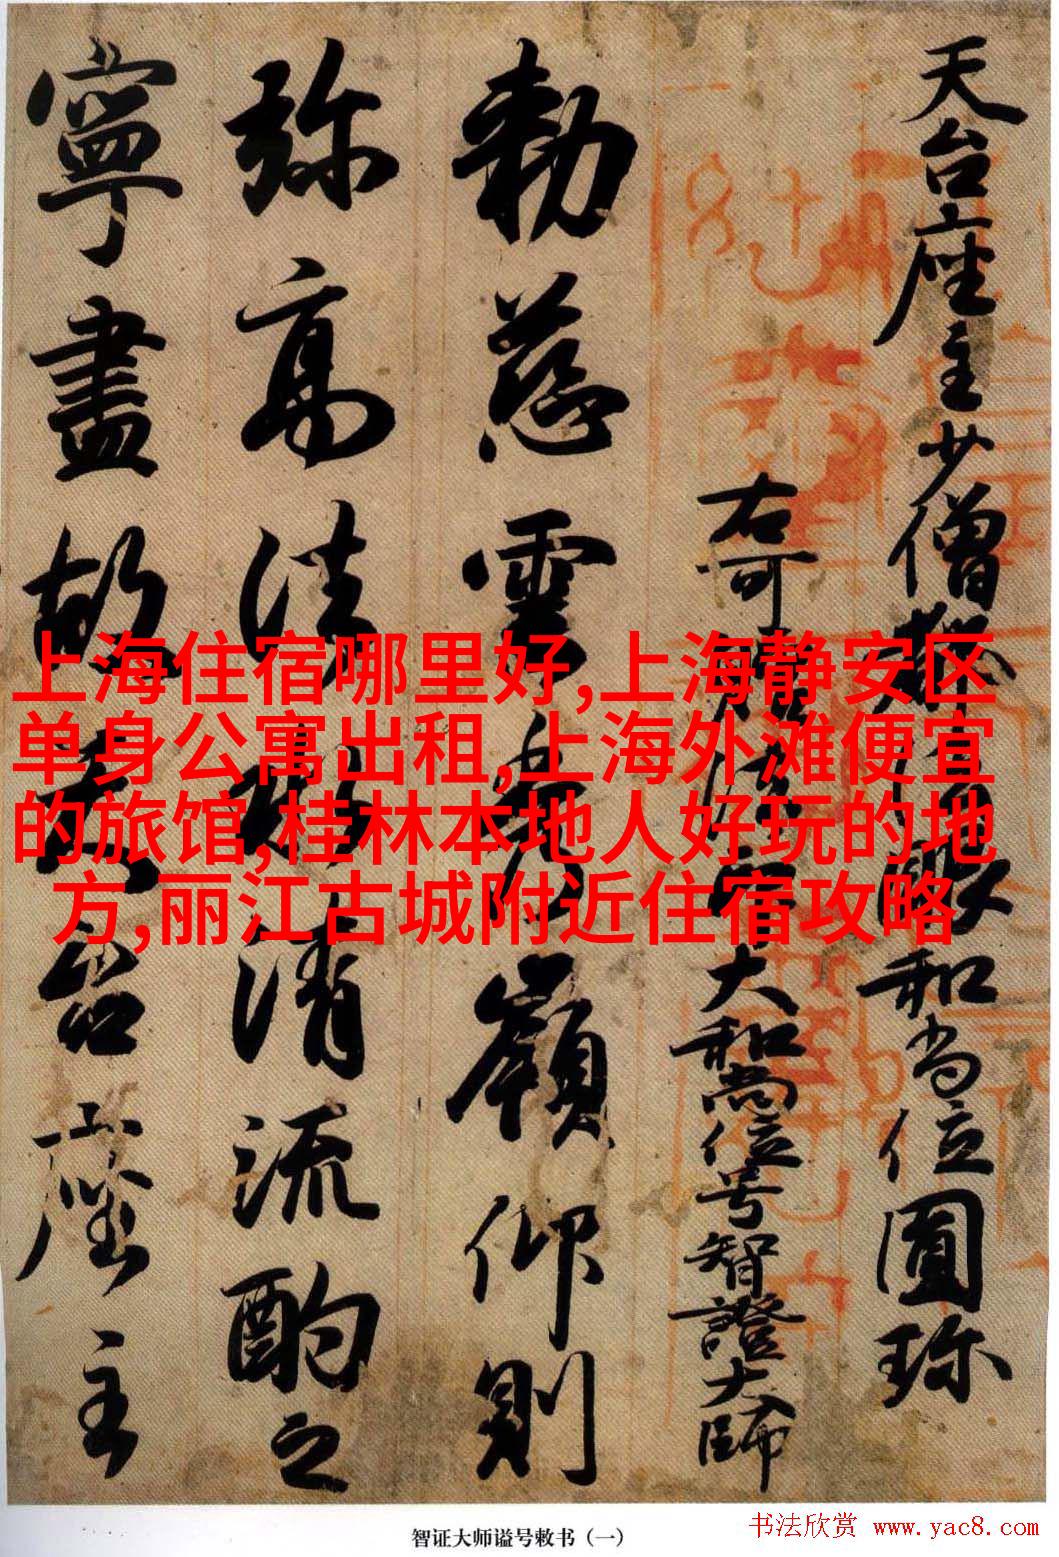 天台座主少僧都法眼和尚位圓珍
右可贈法印大和尚位号智證大師
勅慈雲秀嶺仰則
弥高法水清流酌之
寧盡故天台座主
上海住宿哪里好,上海静安区
单身公寓出租,上海外滩便宜
的旅馆,桂林本地人好玩的地
方,丽江古城附近住宿攻略
智证大师谥号敕书（一）
书法欣赏 www.yac8.com